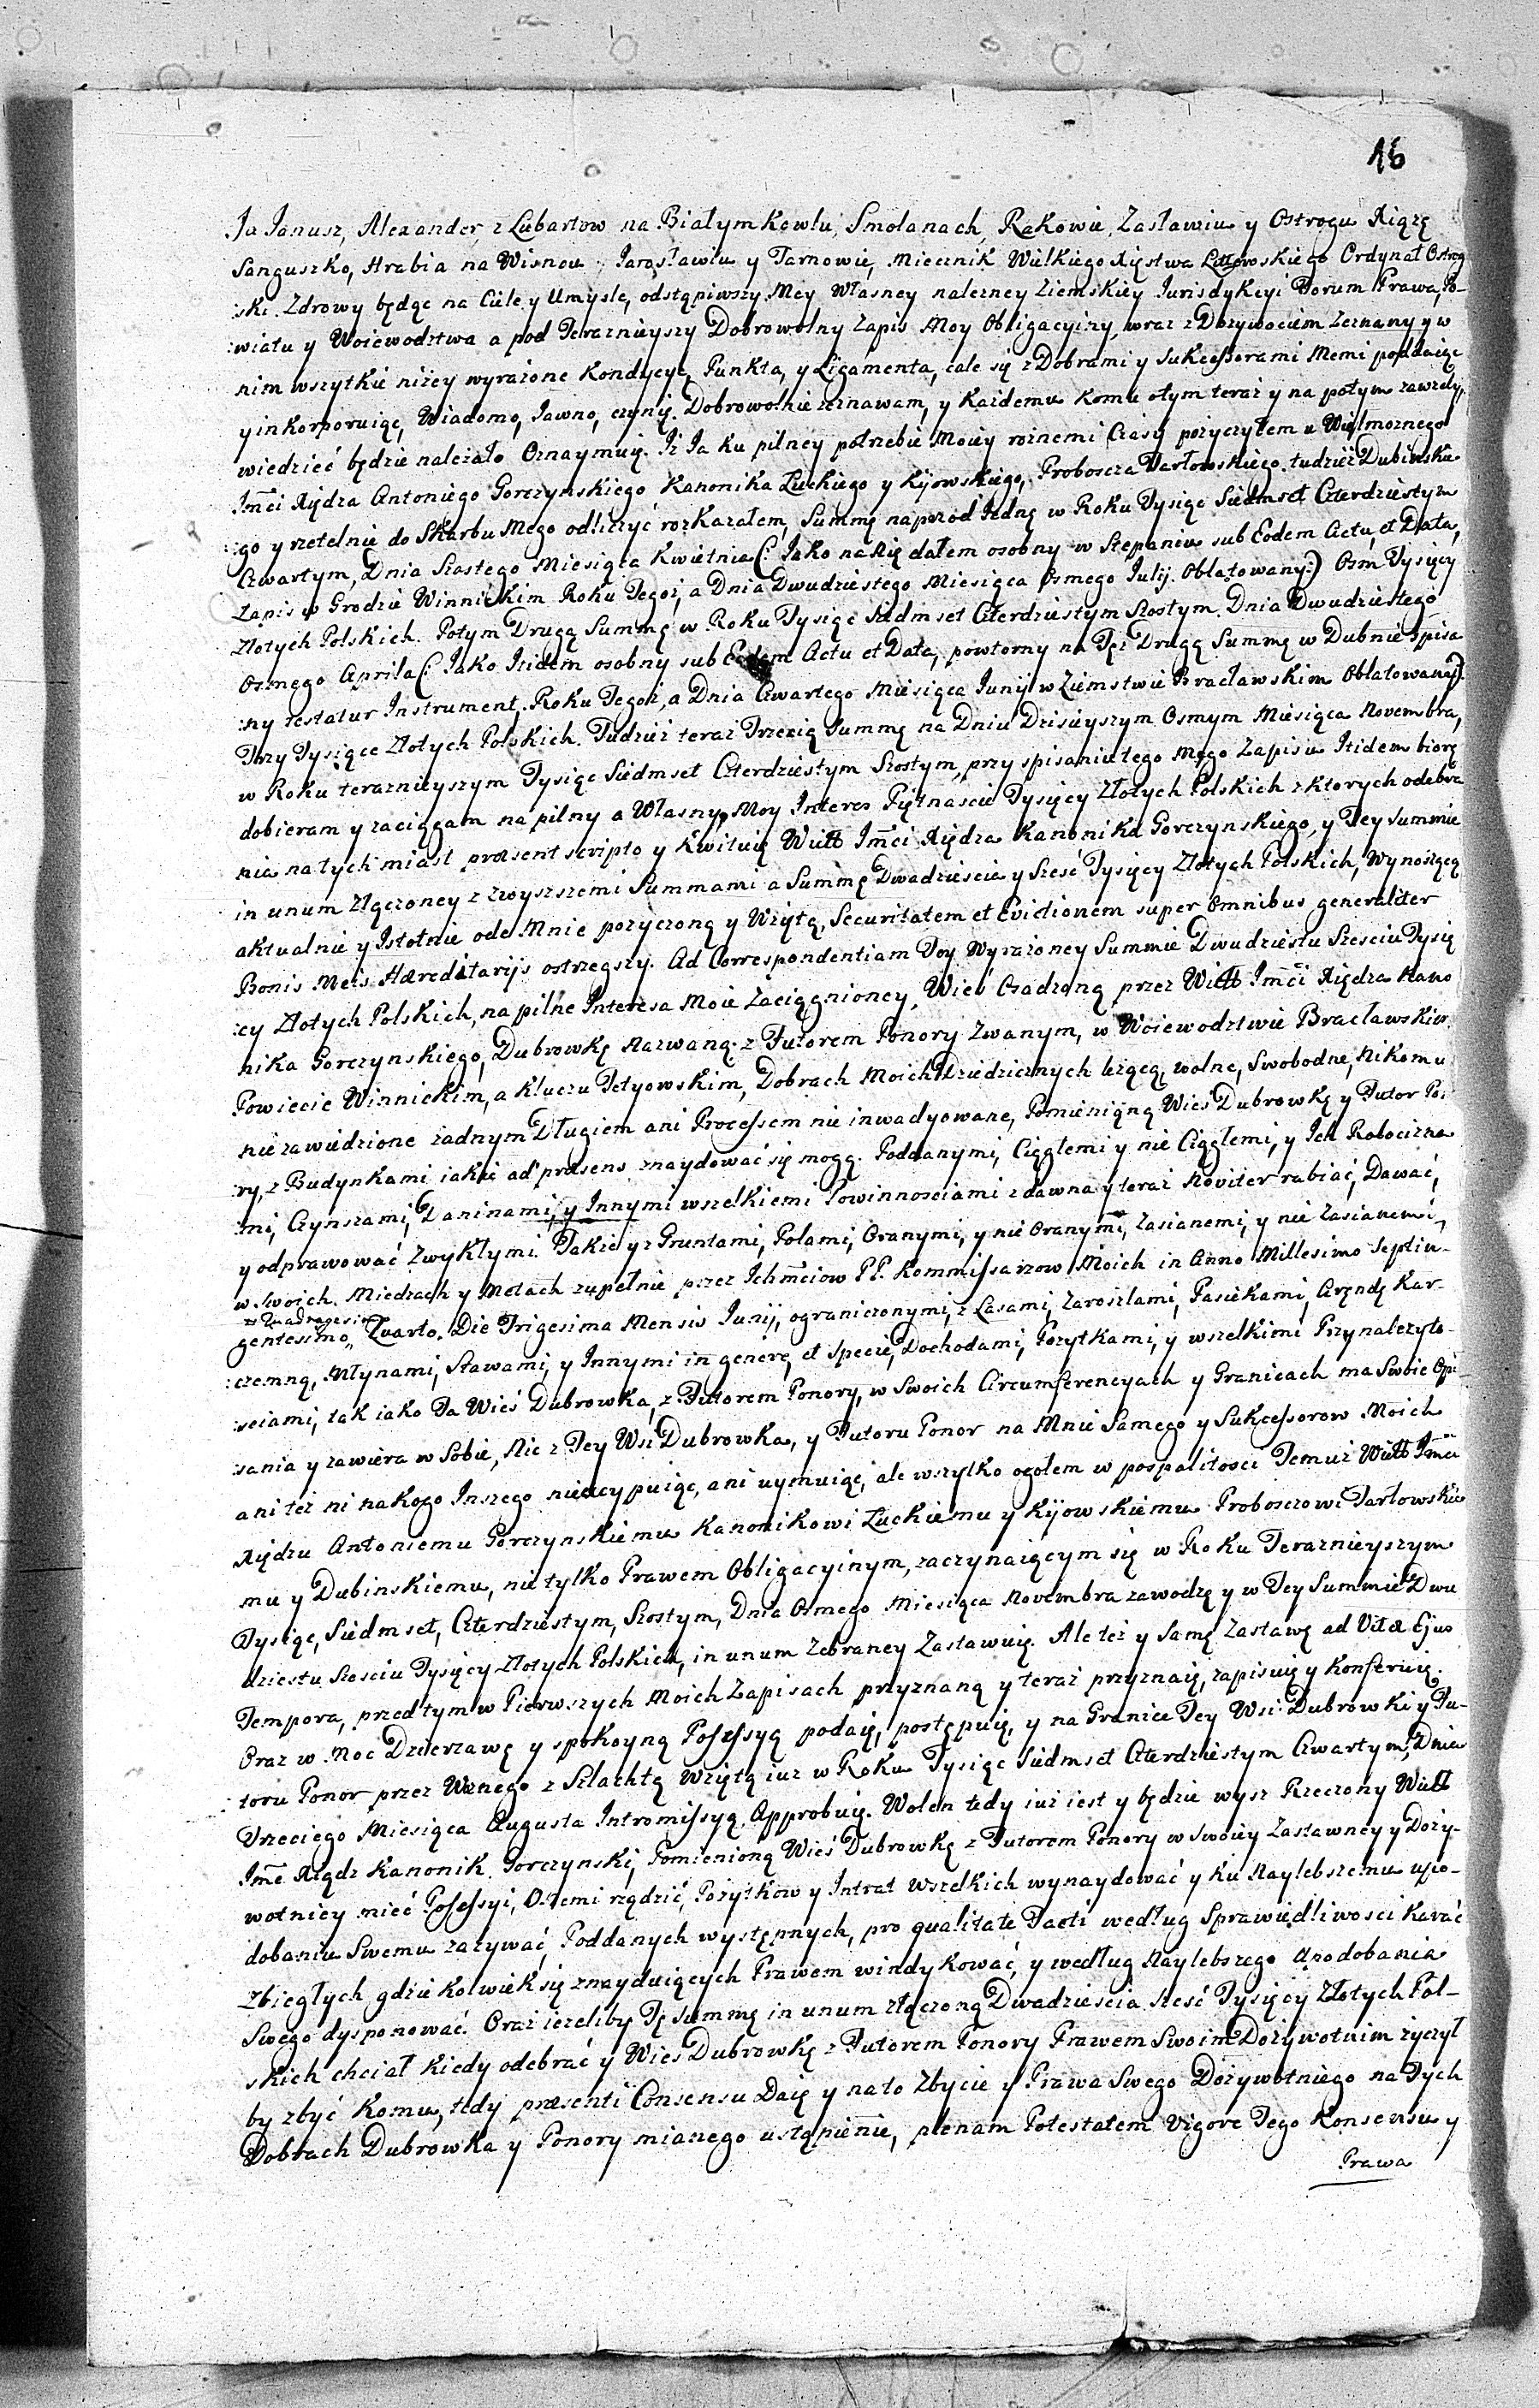 16
Ja Janusz, Alexander, z Lubartow na Białym Kowlu, Smolanach, Rakowie, Zasławiu y Ostrogu Xiążę
Sanguszko, Hrabia na Wisnou Jarosławiu y Tarnowie, Miecznik Wielkiego Xięstwa Littewskiego Ordynat Ostrog
ski. Zdrowy będąc na Ciele y Umysle, odstąpiwszy Mey Własney należney Ziemskiey Jurisdykcyi Forum Prawa, Po-
wiatu y Woiewodztwa a pod Teraznieyszy Dobrowolny Zapis Moy Obligacyiny, wraz z Dozywociem zeznany y w
nim wszytkie niżey wyrażone Kondycye, Punkta, y Ligamenta, całe się z Dobrami y Sukcessorami Memi poddaiąc
y inkorporuiąc, Wiadomo, Jawno, czynię. Dobrowolnie zeznawam, y Każdemu Komu otym teraz y na potym zawzdy,
wiedzieć będzie należało Oznaymuię. Iż Ja ku pilney potrzebie Moiey roznemi Czasy pożyczyłem u Wielmoznego
Jmći Xiędza Antoniego Gorczynskiego Kanonika Łuckiego y Kijowskiego, Proboszcza Tarłowskiego, tudzież Dubinskie
go y rzetelnie do Skarbu Mego odliczyć rozkazałem, Summę naprzod Jednę w Roku Tysiąc Siedmset Czterdziestym
Czwartym, Dnia Szostego Miesiąca Kwietnia (: Jako na Nię dałem osobny w Stepaniu sub Eodem Actu, et Data,
Zapis w Grodzie Winnickim Roku Tegoż, a Dnia Dwudziestego Miesiąca Osmego Julij. Oblatowany:) Osm Tysięcy
Złotych Polskich. Potym Drugą Summę w Roku Tysiąc Siedmset Czterdziestym Szostym. Dnia Dwudziestego
Osmego Aprila (: Jako Itidem osobny sub Eodem Actu et Data, powtorny na Tęż Drugą Summę w Dubnie spisa
ny testatur Instrument, Roku Tegoż, a Dnia Czwartego Miesiąca Junij w Ziemstwie Bracławskim Oblatowany:)
Trzy Tysiące Złotych Polskich. Tudzież teraz Trzecią Summę na Dniu Dzisieyszym Osmym Miesiąca Novembra,
w Roku teraznieyszym Tysiąc Siedmset Czterdziestym Szostym, przy spisaniu tego Mego Zapisu Itidem biorę
dobieram y zaciągam na pilny a Własny Moy Interes Piętnascie Tysięcy Złotych Polskich z ktorych odebra
nia natychmiast præsent scripto y Kwituię Wielł Jmći Xiędza Kanonika Gorczynskiego, y Tey summie
in unum złączoney z zwyszszemi Summami a Summę Dwadziescia y Sześć Tysięcy Złotych Polskich, Wynoszącą
aktualnie y Istotnie ode Mnie pożyczoną y Wziętą, Securitatem et Evictionem super omnibus generaliter
Bonis Meis Hæreditarijs ostrzegszy. Ad Correspondentiam Tey Wyrażoney Summie Dwudziestu Szesciu Tysię
cy Złotych Polskich, na pilne Interesa Moie Zaciągnioney, Wieś Osadzoną przez Wielł Jmći Xiędza Kano
nika Gorczynskiego, Dubrowkę Nazwaną z Futorem Ponory Zwanym, w Woiewodztwie Bracławskim
Powiecie Winnickim, a Kluczu Tetyowskim, Dobrach Moich Dziedzicznych leżącą, wolne, Swobodne, Nikomu
nie zawiedzione żadnym Długiem ani Processem nie inwadyowane, Pomienioną Wieś Dubrowkę y Futor Po-
ry, z Budynkami iakie ad præsens znaydować się mogą. Poddanymi, Ciągłemi y nie Ciągłemi, y Ich Robocizna
mi, Czynszami, Daninami, y Innymi wszelkiemi Powinnosciami z dawna y teraz Noviter rabiać, Dawać,
y odprawować zwykłymi. Także y z Gruntami, Polami, Oranymi, y nie oranymi, zasianemi, y nie zasianemi,
w Swoich Miedzach y Metach zupełnie przez Ichmćiow PP. Kommissarzow Moich in Anno Millesimo Septin-
# Quadragesimo
gentesimo „ Quarto. Die Trigesima Mensis Junij, ograniczonymi, z Lasami, Zaroszlami, Pasiekami, Arendą Kar-
czemną, Młynami, Stawami, y Innymi in genere, et specie, Dochodami, Pożytkami, y wszelkimi Przynależyto-
sciami, tak iako Ta Wieś Dubrowka, z Futorem Ponory, w Swoich Circumferencyach y Granicach ma Swoie Opi-
sania y zawiera w Sobie, Nic z Tey Wsi Dubrowka, y Futoru Ponor na Mnie Samego y Sukcessorow Moich
ani też ni nakogo Inszego nieexcypuiąc, ani uymuiąc, ale wszytko ogołem w pospolitosci Temuż Wielł Jmći
Xiędzu Antoniemu Gorczynskiemu Kanonikowi Łuckiemu y Kijowskiemu Proboszczowi Tarłowskie
mu y Dubinskiemu, nie tylko Prawem Obligacyinym, zaczynaiącym się w Roku Teraznieyszym
Tysiąc, Siedmset, Czterdziestym, Szostym, Dnia Osmego Miesiąca Novembra zawodzę y w Tey Summie Dwu
dziestu Szesciu Tysięcy Złotych Polskich, in unum Zebraney Zastawuię. Ale też y Samę Zastawę ad Vitæ Ejus
Tempora, przed tym w Pierwszych Moich Zapisach przyznaną y teraz przyznaię, zapisuię y Konferuię.
Oraz w Moc Dzierzawę y spokoyną Possessyą podaię, postępuię, y na Granice Tey Wsi Dubrowki y Fu-
toru Ponor przez Woznego z Szlachtą Wziętą iuż w Roku Tysiąc Siedmset Czterdziestym Czwartym, Dnia
Trzeciego Miesiąca Augusta Intromissyą Approbuię. Wolen tedy iuż iest y będzie wysz Rzeczony Wielł
Jmć Xiądz Kanonik Gorczynski, Pomienioną Wieś Dubrowkę z Futorem Ponory w Swoiey Zastawney y Doży-
wotniey mieć Possessyi, Onemi rządzić, Pożytkow y Intrat wszelkich wynaydować y ku Naylebszemu upo-
dobaniu Swemu zażywać, Poddanych występnych, pro qualitate Facti według Sprawiedliwosci Karać
Zbiegłych gdziekolwiek się znayduiących Prawem windykować, y według Naylebszego Upodobania
Swego dysponować. Oraz ieżeliby Tę Summę in unum złączoną Dwadziescia szesć Tysięcy Złotych Pol-
skich chciał Kiedy odebrać y Wieś Dubrowkę z Futorem Ponory Prawem Swoim Dożywotnim życzył
by zbyć Komu, tedy præsenti Consensu Daię y na to Zbycie y Prawa Swego Dożywotniego na Tych
Dobrach Dubrowka y Ponory mianego ustąpienie, plenam Potestatem vigore Tego Konsensu y
Prawa